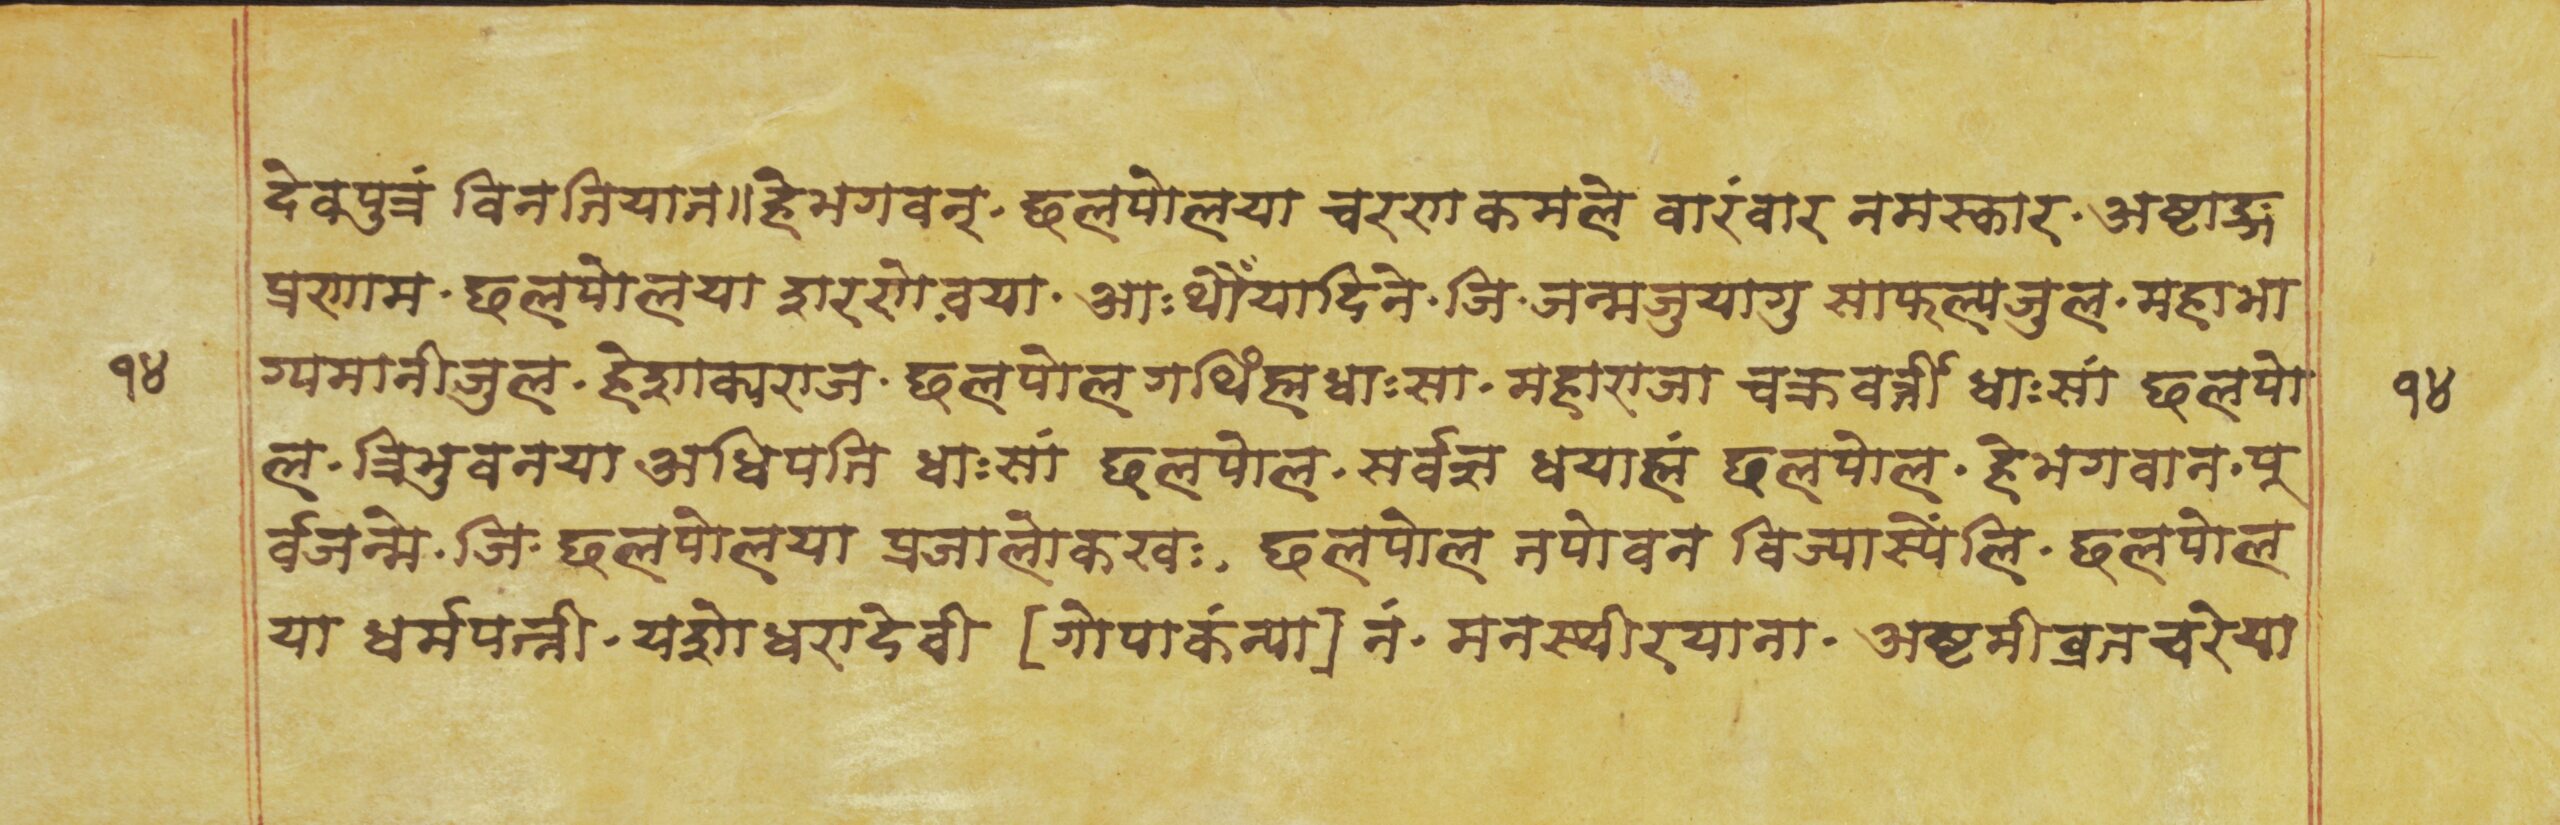 देवपुत्रं विनतियात॥हेभगवन्· छलपोलया चरणकमले वारंवार नमस्कार· अष्टाङ्ग
प्रणाम· छलपोलया शरणे वया· आः थौंयादिने· जि· जन्मजुयागु साफल्यजुल· महाभा
१४ ग्यमानीजुल· हेशाक्यराज· छलपोल गथिंह्मधाःसा· महाराजा चक्रवर्त्ती धाःसां छलपो १४
ल· त्रिभुवनया अधिपति धाःसां छलपोल· सर्वज्ञ धयाह्मं छलपोल· हेभगवान· पू
र्वजन्मे· जि· छलपोलया प्रजालोकखः· छलपोल तपोवन विज्यास्येंलि· छलपोल
या धर्मपत्नी· यशोधरादेवी [गोपाकंन्या] नं· मनस्थीरयाना· अष्टमीव्रतचरेया